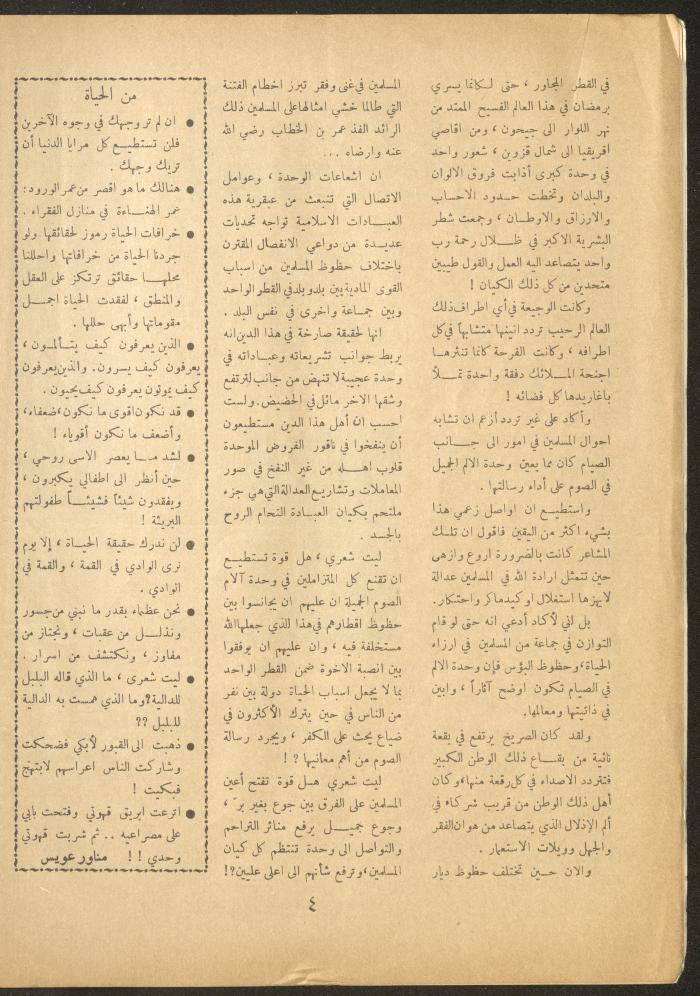 في القطر المجاور ، حتى لكانما يسري
برمضان في هذا العالم الفسيح الممتد من
نهر اللوار الى جيحون ، ومن اقاصي
افريقيا الى شمال قزوين ، شعور واحد
في وحدة كبرى أذابت فروق الالوان
والبلدان وتخطت حدود الاحساب
والارزاق والاوطان ، وجمعت شطر
البشرية الاكبر في ظلال رحمة رب
واحد يتصاعد اليه العمل والقول طيبين
متحدين من كل ذلك الكيان !
وكانت الوجيعة في أي اطراف ذلك
العالم الرحيب تردد انينها متشابهاً في كل
اطرافه ، وكانت الفرحة كانما تنثرها
اجنحة الملائك دفقة واحدة تملأ
باغاريدها كل فضائه !
وأكاد على غير تردد أزعم ان تشابه
احوال المسلمين في امور الى جانب
الصيام كان مما يعين وحدة الالم الجميل
في الصوم على أداء رسالتها .
واستطيع ان اواصل زعمي هذا
بشيء اكثر من اليقين فاقول ان تلك
المشاعر كانت بالضرورة اروع وازهى
حين تتمثل ارادة الله في المسلمين عدالة
لايهزها استغلال او كيد ماكر واحتكار.
بل اني لأكاد أدعي انه حتى لو قام
التوازن في جماعة من المسلمين في ارزاء
الحياة، وحظوظ البؤس فإن وحدة الالم
في الصيام تكون اوضح آثاراً ، وابين
في ذاتيتها ومعالمها.
ولقد كان الصريخ يرتفع في بقعة
نائية من بقاع ذلك الوطن الكبير
فتتردد الاصداء في كل رقعة منها، وكان
أهل ذلك الوطن من قريب شركاء في
ألم الإذلال الذي يتصاعد من هوان الفقر
والجهل وويلات الاستعمار .
والان حين تختلف حظوظ ديار
المسلمين في غنى وفقر تبرز اخطام الفتنة
التي طالما خشي امثالها على المسلمين ذلك
الرائد الفذ عمر بن الخطاب رضي الله
عنه وارضاه ...
ان اشعاعات الوحدة ، وعوامل
الاتصال التي تنبعث من عبقرية هذه
العبادات الاسلامية تواجه تحديات
عديدة من دواعي الانفصال المقترن
باختلاف حظوظ المسلمين من اسباب
القوى المادية بين بلد وبلد في القطر الواحد
وبين جماعة واخرى في نفس البلد .
انها لحقيقة صارخة في هذا الدين انه
يربط جوانب تشريعاته وعباداته في
وحدة عجيبة لا تنهض من جانب لترتفع
وشقها الاخر ماثل في الحضيض. ولست
احسب ان أهل هذا الدين مستطيعون
أن ينفخوا في ناقور الفروض الموحدة
قلوب اهله من غير النفخ في صور
المعاملات وتشاريع العدالة التي هي جزء
ملتحم بكيان العبادة التحام الروح
بالجسد .
ليت شعري ، هل قوة تستطيع
ان تقنع كل المتزاملين في وحدة آلام
الصوم الجميلة ان عليهم ان يجانسوا بين
حظوظ اقطارهم في هذا للذي جعلها الله
مستخلفة فيه ، وان عليهم ان يوفقوا
بين انصبة الاخوة ضمن القطر الواحد
بما لا يجعل اسباب الحياة دولة بين نفر
من الناس في حين يترك الأكثرون في
ضياع يحث على الكفر ، ويجرد رسالة
الصوم من أهم معانيها ? !
ليت شعري هل قوة تفتح أعين
المسلمين على الفرق بين جوع بغير برّ ،
وجوع جميل يرفع منائر التراحم
والتواصل الى وحدة تنتظم كل كيان
المسلمين، وترفع شأنهم الى اعلى عليين?!
من الحياة
● ان لم تر وجهك في وجوه الآخرين
فلن تستطيع كل مرايا الدنيا أن
تريك وجهك .
● هنالك ما هو اقصر من عمر الورود :
عمر الهناءة في منازل الفقراء .
● خرافات الحياة رموز لحقائقها. ولو
جردنا الحياة من خرافاتها واحللنا
محلها حقائق ترتكز على العقل
والمنطق ، لفقدت الحياة اجمل
مقوماتها وأبهى حللها .
● الذين يعرفون كيف يتألمون ،
يعرفون كيف يسرون. والذين يعرفون
كيف يموتون يعرفون كيف يحيون .
● قد نكون اقوى ما نكون، ضعفاء،
وأضعف ما نكون أقوياء !
● لشد ما يعصر الاسى روحي ،
حين أنظر الى اطفالي يكبرون ،
ويفقدون شيئاً فشيئاً طفولتهم
البريئة !
● لن ندرك حقيقة الحياة ، إلا يوم
نرى الوادي في القمة ، والقمة في
الوادي .
● نحن عظماء بقدر ما نبني من جسور
ونذلل من عقبات ، ونجتاز من
مفاوز ، ونكتشف من اسرار .
● ليت شعرى ، ما الذي قاله البلبل
للدالية? وما الذي همست به الدالية
للبلبل ??
● ذهبت الى القبور لأبكي فضحكت
وشاركت الناس اعراسهم لابتهج
فبكيت !
● اترعت ابريق قهوتي وفتحت بابي
على مصراعيه .. ثم شربت قهوتي
وحدي ! ! مناور عويس
٤